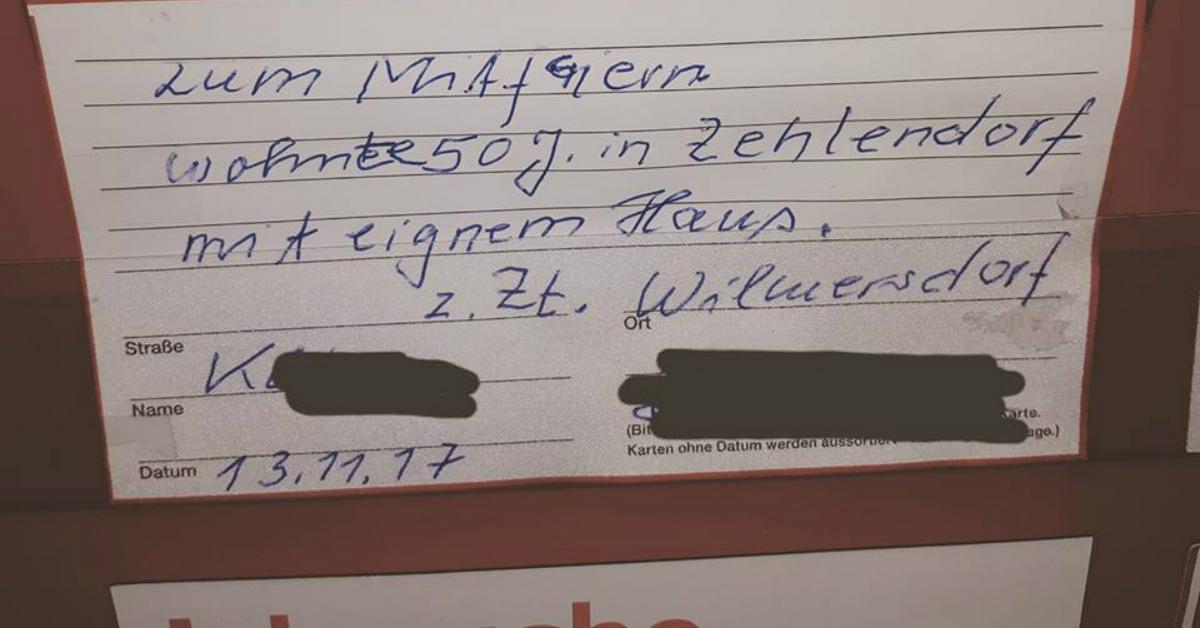 zum Mitfeiern
wohnte 50 J. in Zehlendorf
mit eignem Haus.
z. Zt. Wilmersdorf
Straße
Ort
Name
(Bit
arte.
Karten ohne Datum werden aussortier
age.)
Datum 13.11.17